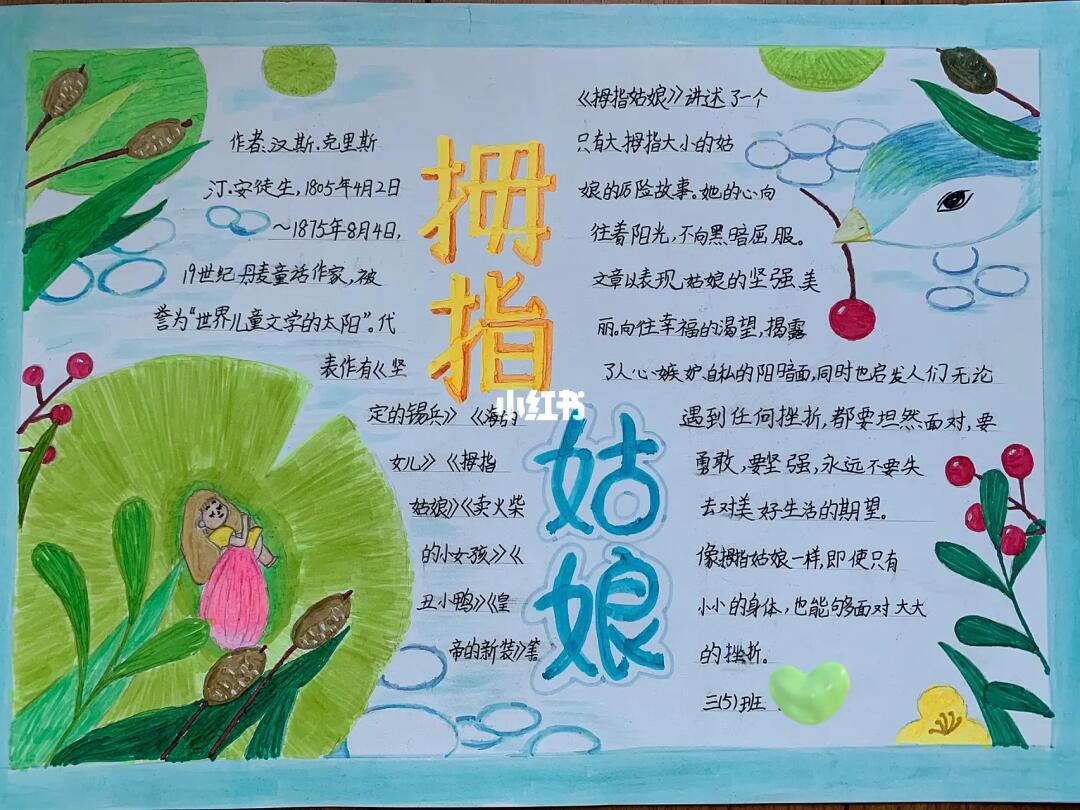 作者:汉斯.克里斯
汀.安徒生,1805年4月2日
～1875年8月4日,
19世纪丹麦童话作家,被
誉为“世界儿童文学的太阳”。代
表作有《坚
定的锡兵》《海的
女儿》《拇指
姑娘》《卖火柴
的小女孩》《
丑小鸭》《皇
帝的新装》等
拇指
姑娘
小红书
《拇指姑娘》讲述了一个
只有大拇指大小的姑
娘的历险故事。她的心向
往着阳光,不向黑暗屈服。
文章以表现姑娘的坚强美
丽。向往幸福的渴望,揭露
了人心嫉妒自私的阳暗面,同时也启发人们无论
遇到任何挫折,都要坦然面对,要
勇敢,要坚强,永远不要失
去对美好生活的期望。
像拇指姑娘一样,即使只有
小小的身体,也能够面对大大
的挫折。
三(5)班